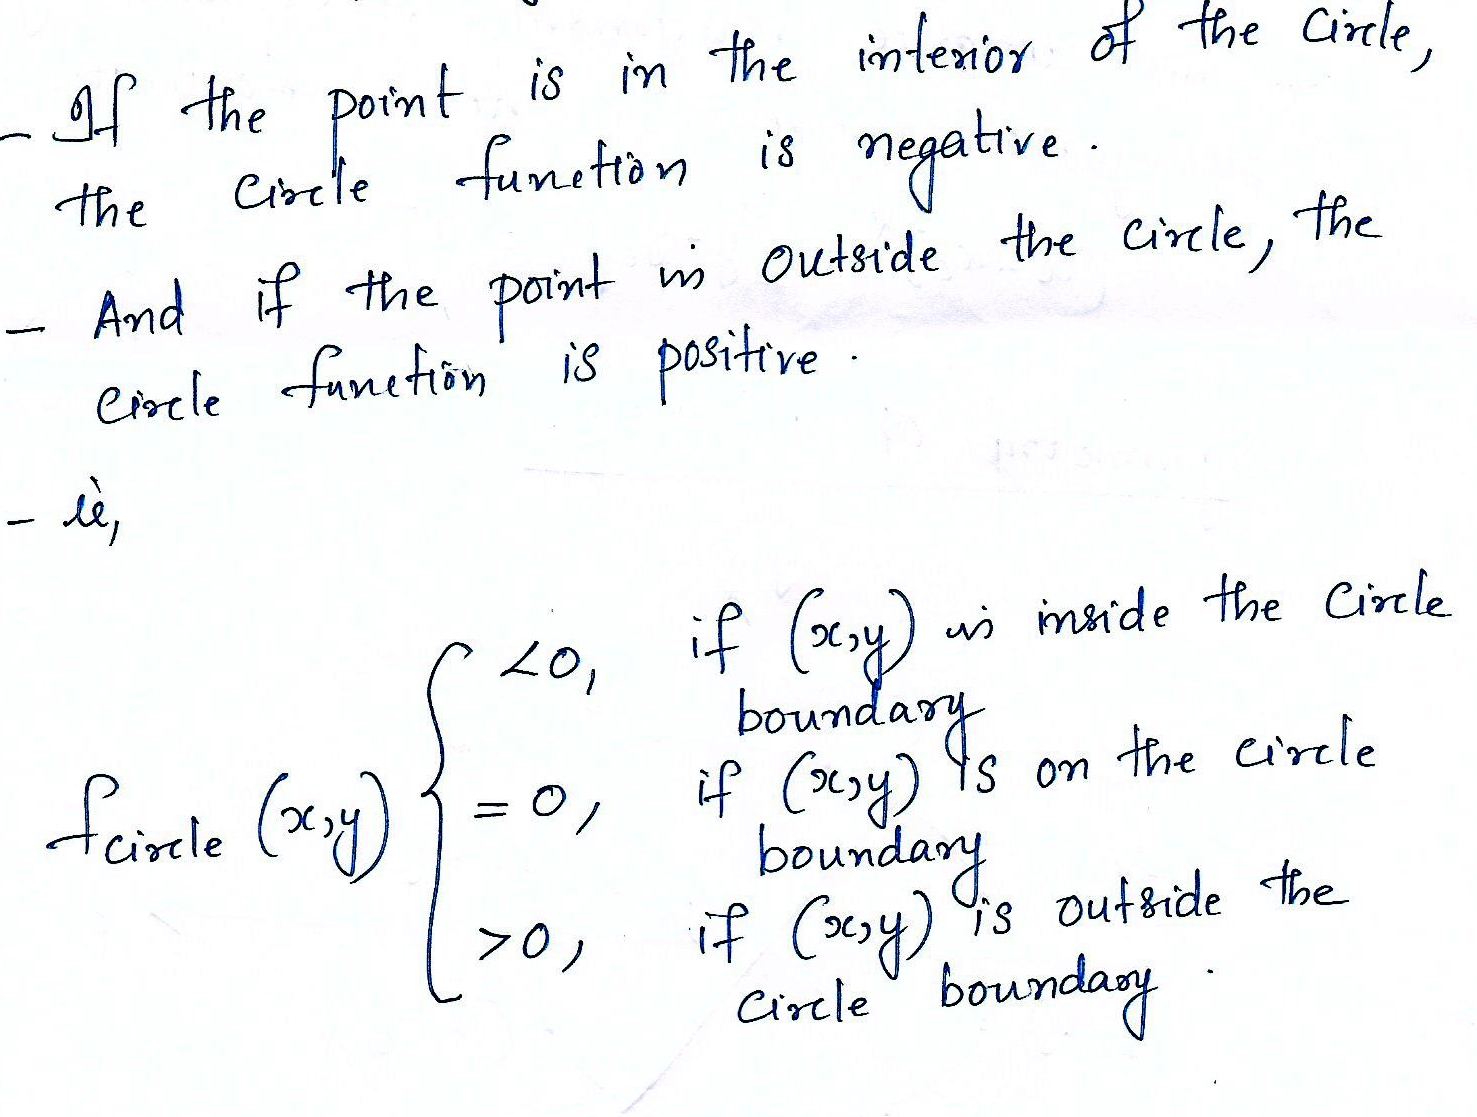 - If the point is in the interior of the Circle,
the Circle function is negative.
- And if the point is outside the circle, the
circle function is positive.
- ie,
<0, if (x,y) is inside the Circle
boundary
fcircle (x,y) = 0, if (x,y) is on the circle
boundary
>0, if (x,y) is outside the
Circle boundary.